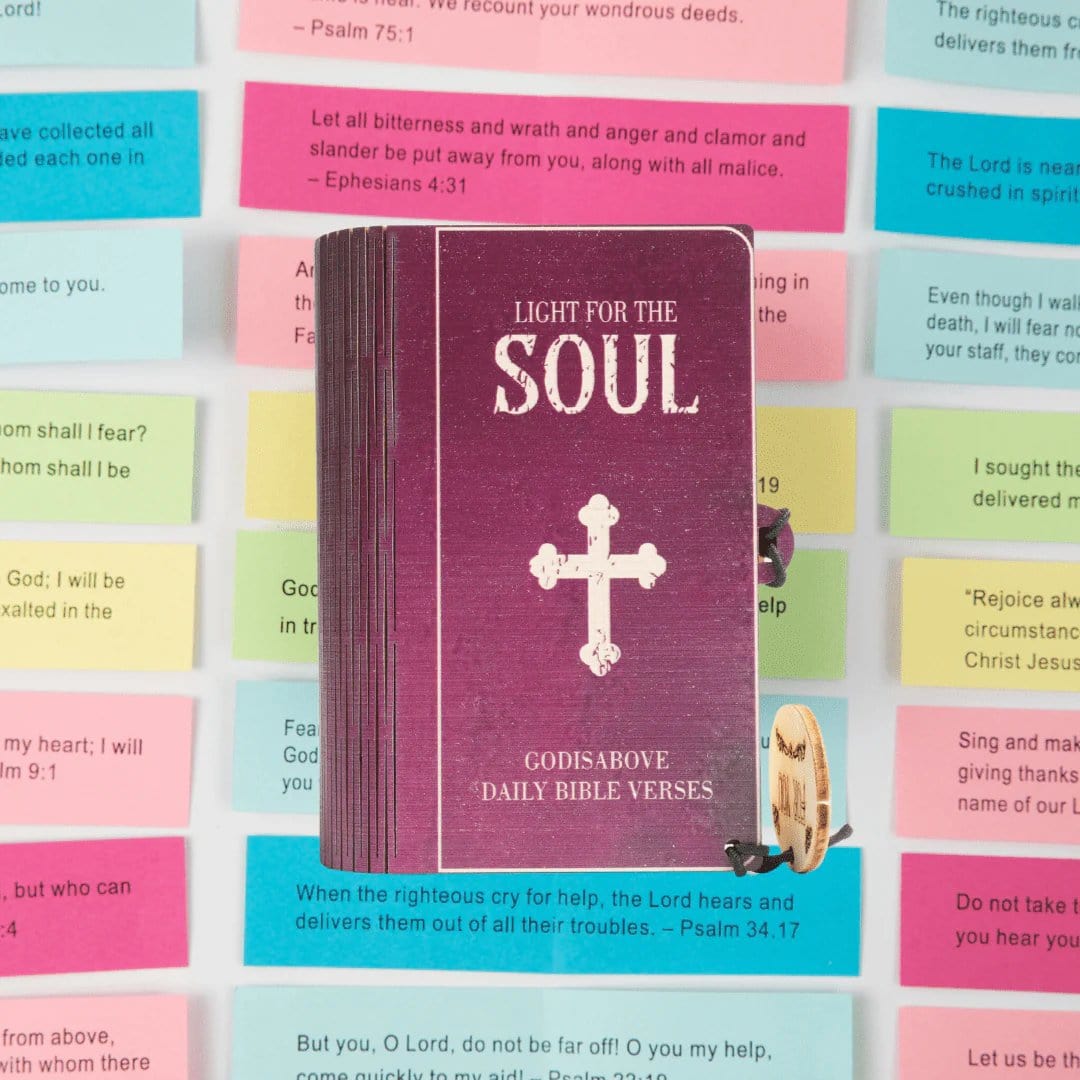 ord!
is near. We recount your wondrous deeds.
– Psalm 75:1
The righteous
delivers them
ave collected all
ed each one in
Let all bitterness and wrath and anger and clamor and
slander be put away from you, along with all malice.
– Ephesians 4:31
The Lord is near
crushed in spirit
ome to you.
ing in
the
Even though I wal
death, I will fear no
your staff, they
LIGHT FOR THE
SOUL
om shall I fear?
hom shall I be
19
I sought the
delivered
God; I will be
xalted in the
God
in
elp
"Rejoice
Christ Jesus
my heart; I will
lm 9:1
God
you
Sing and
giving thanks
name of our
GODISABOVE
DAILY BIBLE VERSES
, but who can
:4
When the righteous cry for help, the Lord hears and
delivers them out of all their troubles. – Psalm 34.17
Do not take
you hear
from above,
with whom there
But you, O Lord, do not be far off! O you my help,
come quickly to my aid! – Psalm 22:19
Let us be